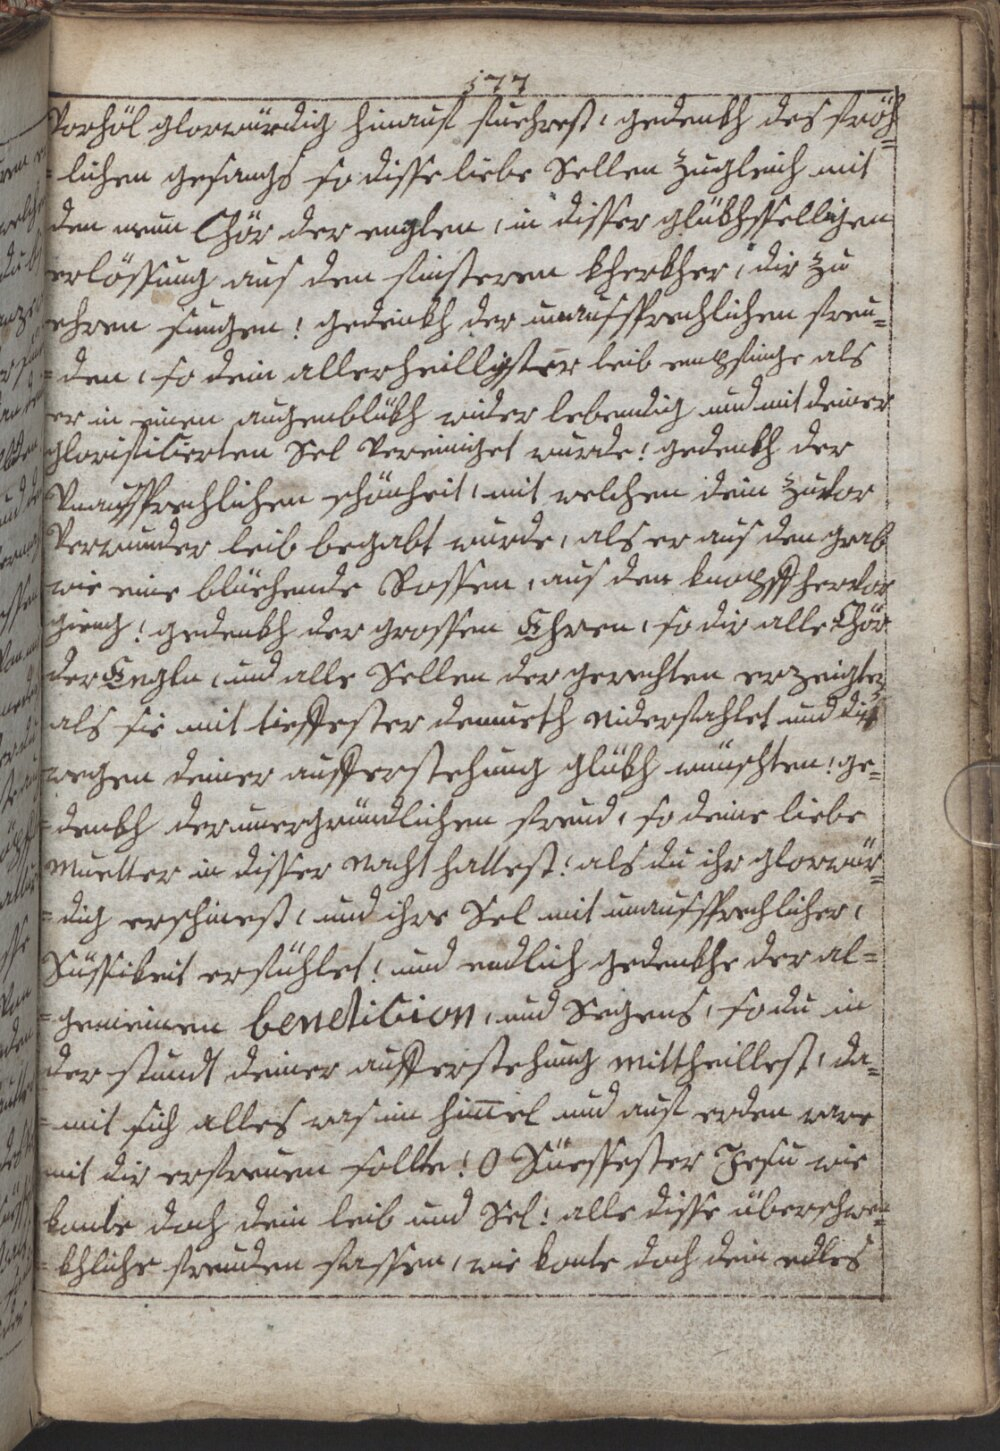 177
Vorhöl glorwürdig hinauf fuehrest, gedenkh des fröh=
=lichen gesangs so disse liebe Sellen zugleich mit
den neun Chör der englen, in disser glükhsselligen
erlössung aus den finsteren kherkher, dir zu
ehren sungen! gedenkh der unaussprechlichen freu=
=den, so dein allerheilligster leib empfinge als
er in einen augenblükh wider lebendig und mit deiner
glorificierten Sel Vereiniget wurde! gedenkh der
Vnaussprechlichen schönheit, mit welchen dein zuvor
Verwunder leib begabt wurde, als er aus den grab
wie eine blüehende Rossen, aus den knopff hervor
gieng! gedenkh der grossen Ehren, so dir alle Chör
der Engln, und alle Sellen der gerechten erzeigten
als sie mit tieffester demueth niderfahlet und dir
wegen deiner aufferstehung glükh wünschten! ge=
=denkh der unergründlichen freud, so deine liebe
Muetter in disser Nacht hattest! als du ihr glorwür=
=dig erschinest, und ihre Sel mit unaussprechlicher,
Süssikeit erfühlet! und endlich gedenkhe der al=
=gemeinen benediction, und Seigens, so du in
der stundt deiner aufferstehung mittheillest, da=
=mit sich alles was im himel und auf erden ware
mit dir erfreuen sollte! O Süessester Jesu wie
konte doch dein leib und Sel! alle disse überschwen=
=khliche freuden fassen, wie konte doch dein edles